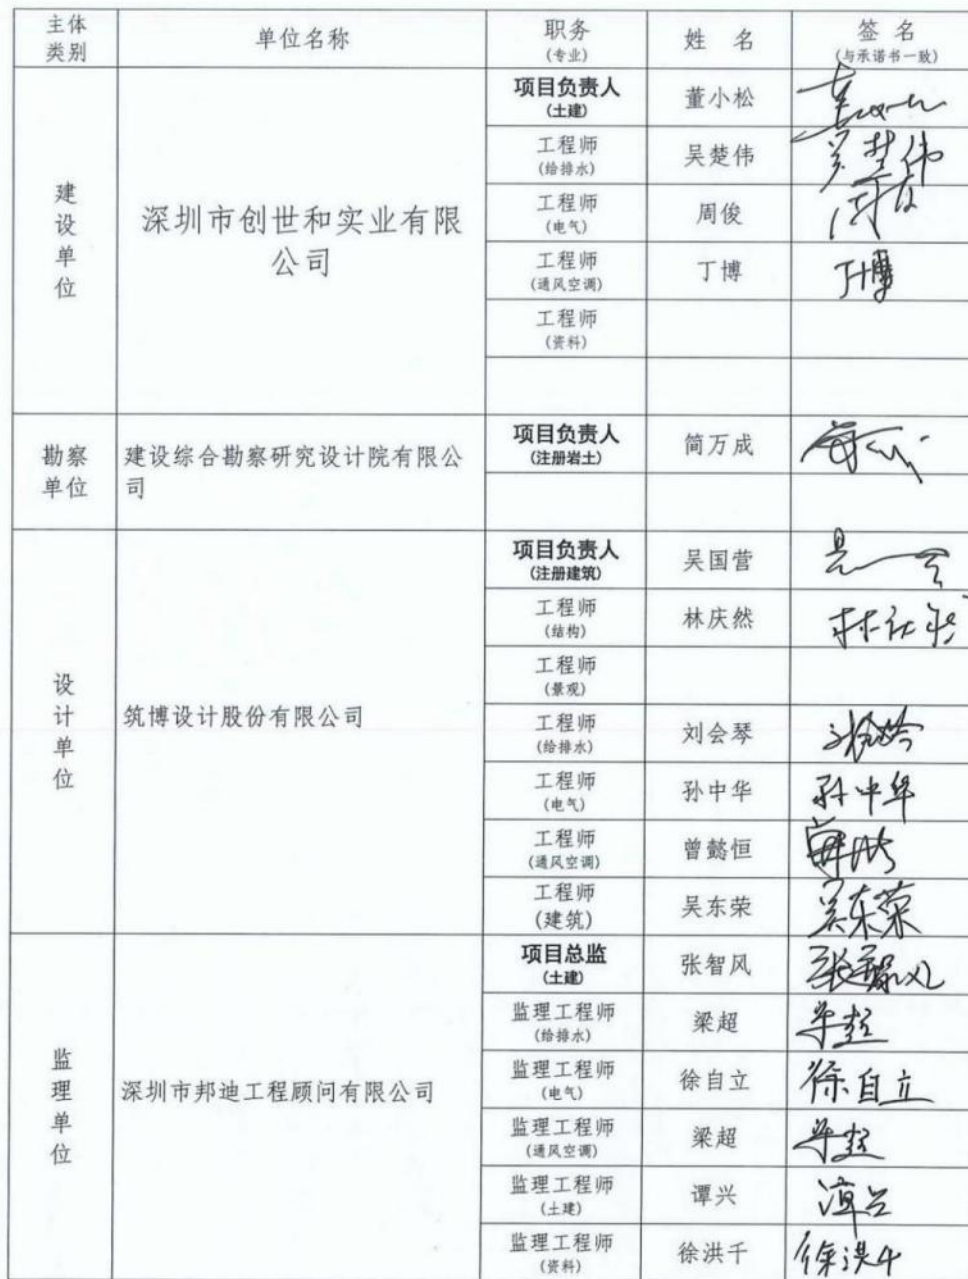 主体
类别
单位名称
职务
(专业)
姓 名
签 名
(与承诺书一致)
建
设
单
位
深圳市创世和实业有限
公司
项目负责人
(土建)
董小松
工程师
(给排水)
吴楚伟
吴楚伟
工程师
(电气)
周俊
工程师
(通风空调)
丁博
丁博
工程师
(资料)
勘察
单位
建设综合勘察研究设计院有限公
司
项目负责人
(注册岩土)
简万成
设
计
单
位
筑博设计股份有限公司
项目负责人
(注册建筑)
吴国营
工程师
(结构)
林庆然
工程师
(景观)
工程师
(给排水)
刘会琴
工程师
(电气)
孙中华
孙中华
工程师
(通风空调)
曾懿恒
工程师
(建筑)
吴东荣
吴东荣
监
理
单
位
深圳市邦迪工程顾问有限公司
项目总监
(土建)
张智风
监理工程师
(给排水)
梁超
监理工程师
(电气)
徐自立
徐自立
监理工程师
(通风空调)
梁超
监理工程师
(土建)
谭兴
监理工程师
(资料)
徐洪千
徐洪千